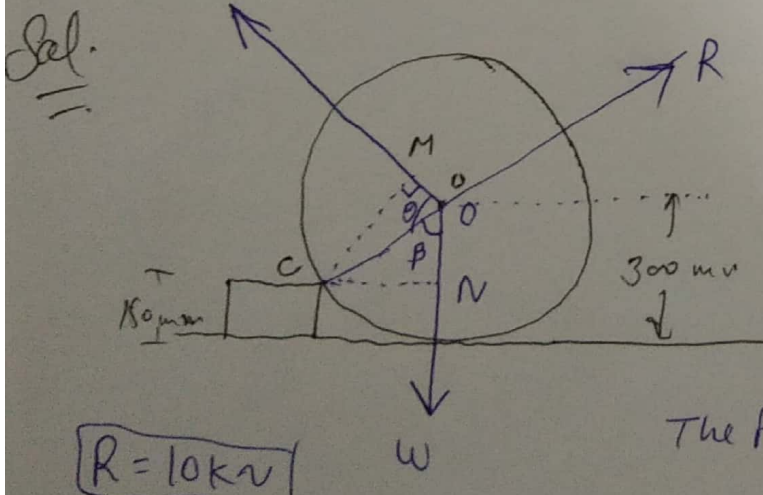 Sol.
R
M
O
θ
O
C
β
N
300 mm
150 mm
W
R = 10 kN
The